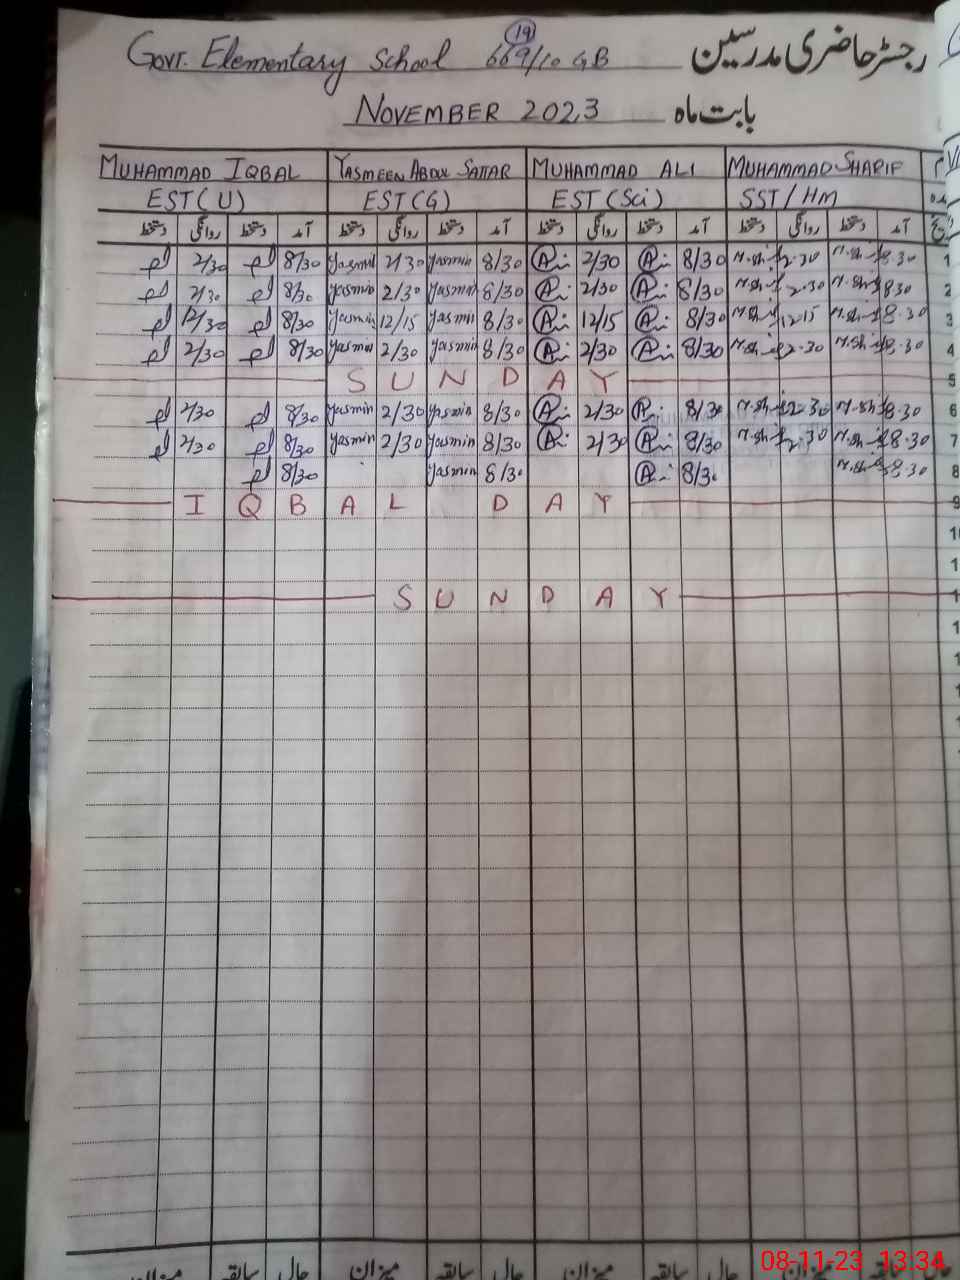 19
Govt. Elementary School 669/10 GB رجسٹر حاضری مدرسین
NOVEMBER 2023 بابت ماہ
MUHAMMAD IQBAL YASMEEN ABDUL SATTAR MUHAMMAD ALI MUHAMMAD SHARIF
EST(U) EST(G) EST(Sci) SST/HM
دستخط روانگی دستخط آمد دستخط روانگی دستخط آمد دستخط روانگی دستخط آمد دستخط روانگی دستخط آمد
2/30 8/30 Yasmin 2/30 Yasmin 8/30 2/30 8/30 2.30 8.30 1
2/30 8/30 Yasmin 2/30 Yasmin 8/30 2/30 8/30 2.30 8.30 2
12/30 8/30 Yasmin 12/15 Yasmin 8/30 12/15 8/30 12.15 8.30 3
2/30 8/30 Yasmin 2/30 Yasmin 8/30 2/30 8/30 2.30 8.30 4
SUNDAY 5
2/30 8/30 Yasmin 2/30 Yasmin 8/30 2/30 8/30 2.30 8.30 6
2/30 8/30 Yasmin 2/30 Yasmin 8/30 2/30 8/30 2.30 8.30 7
8/30 Yasmin 8/30 8/30 8.30 8
IQBAL DAY 9
SUNDAY
میزان سابقہ حال میزان سابقہ حال میزان سابقہ حال میزان
08-11-23 13:34